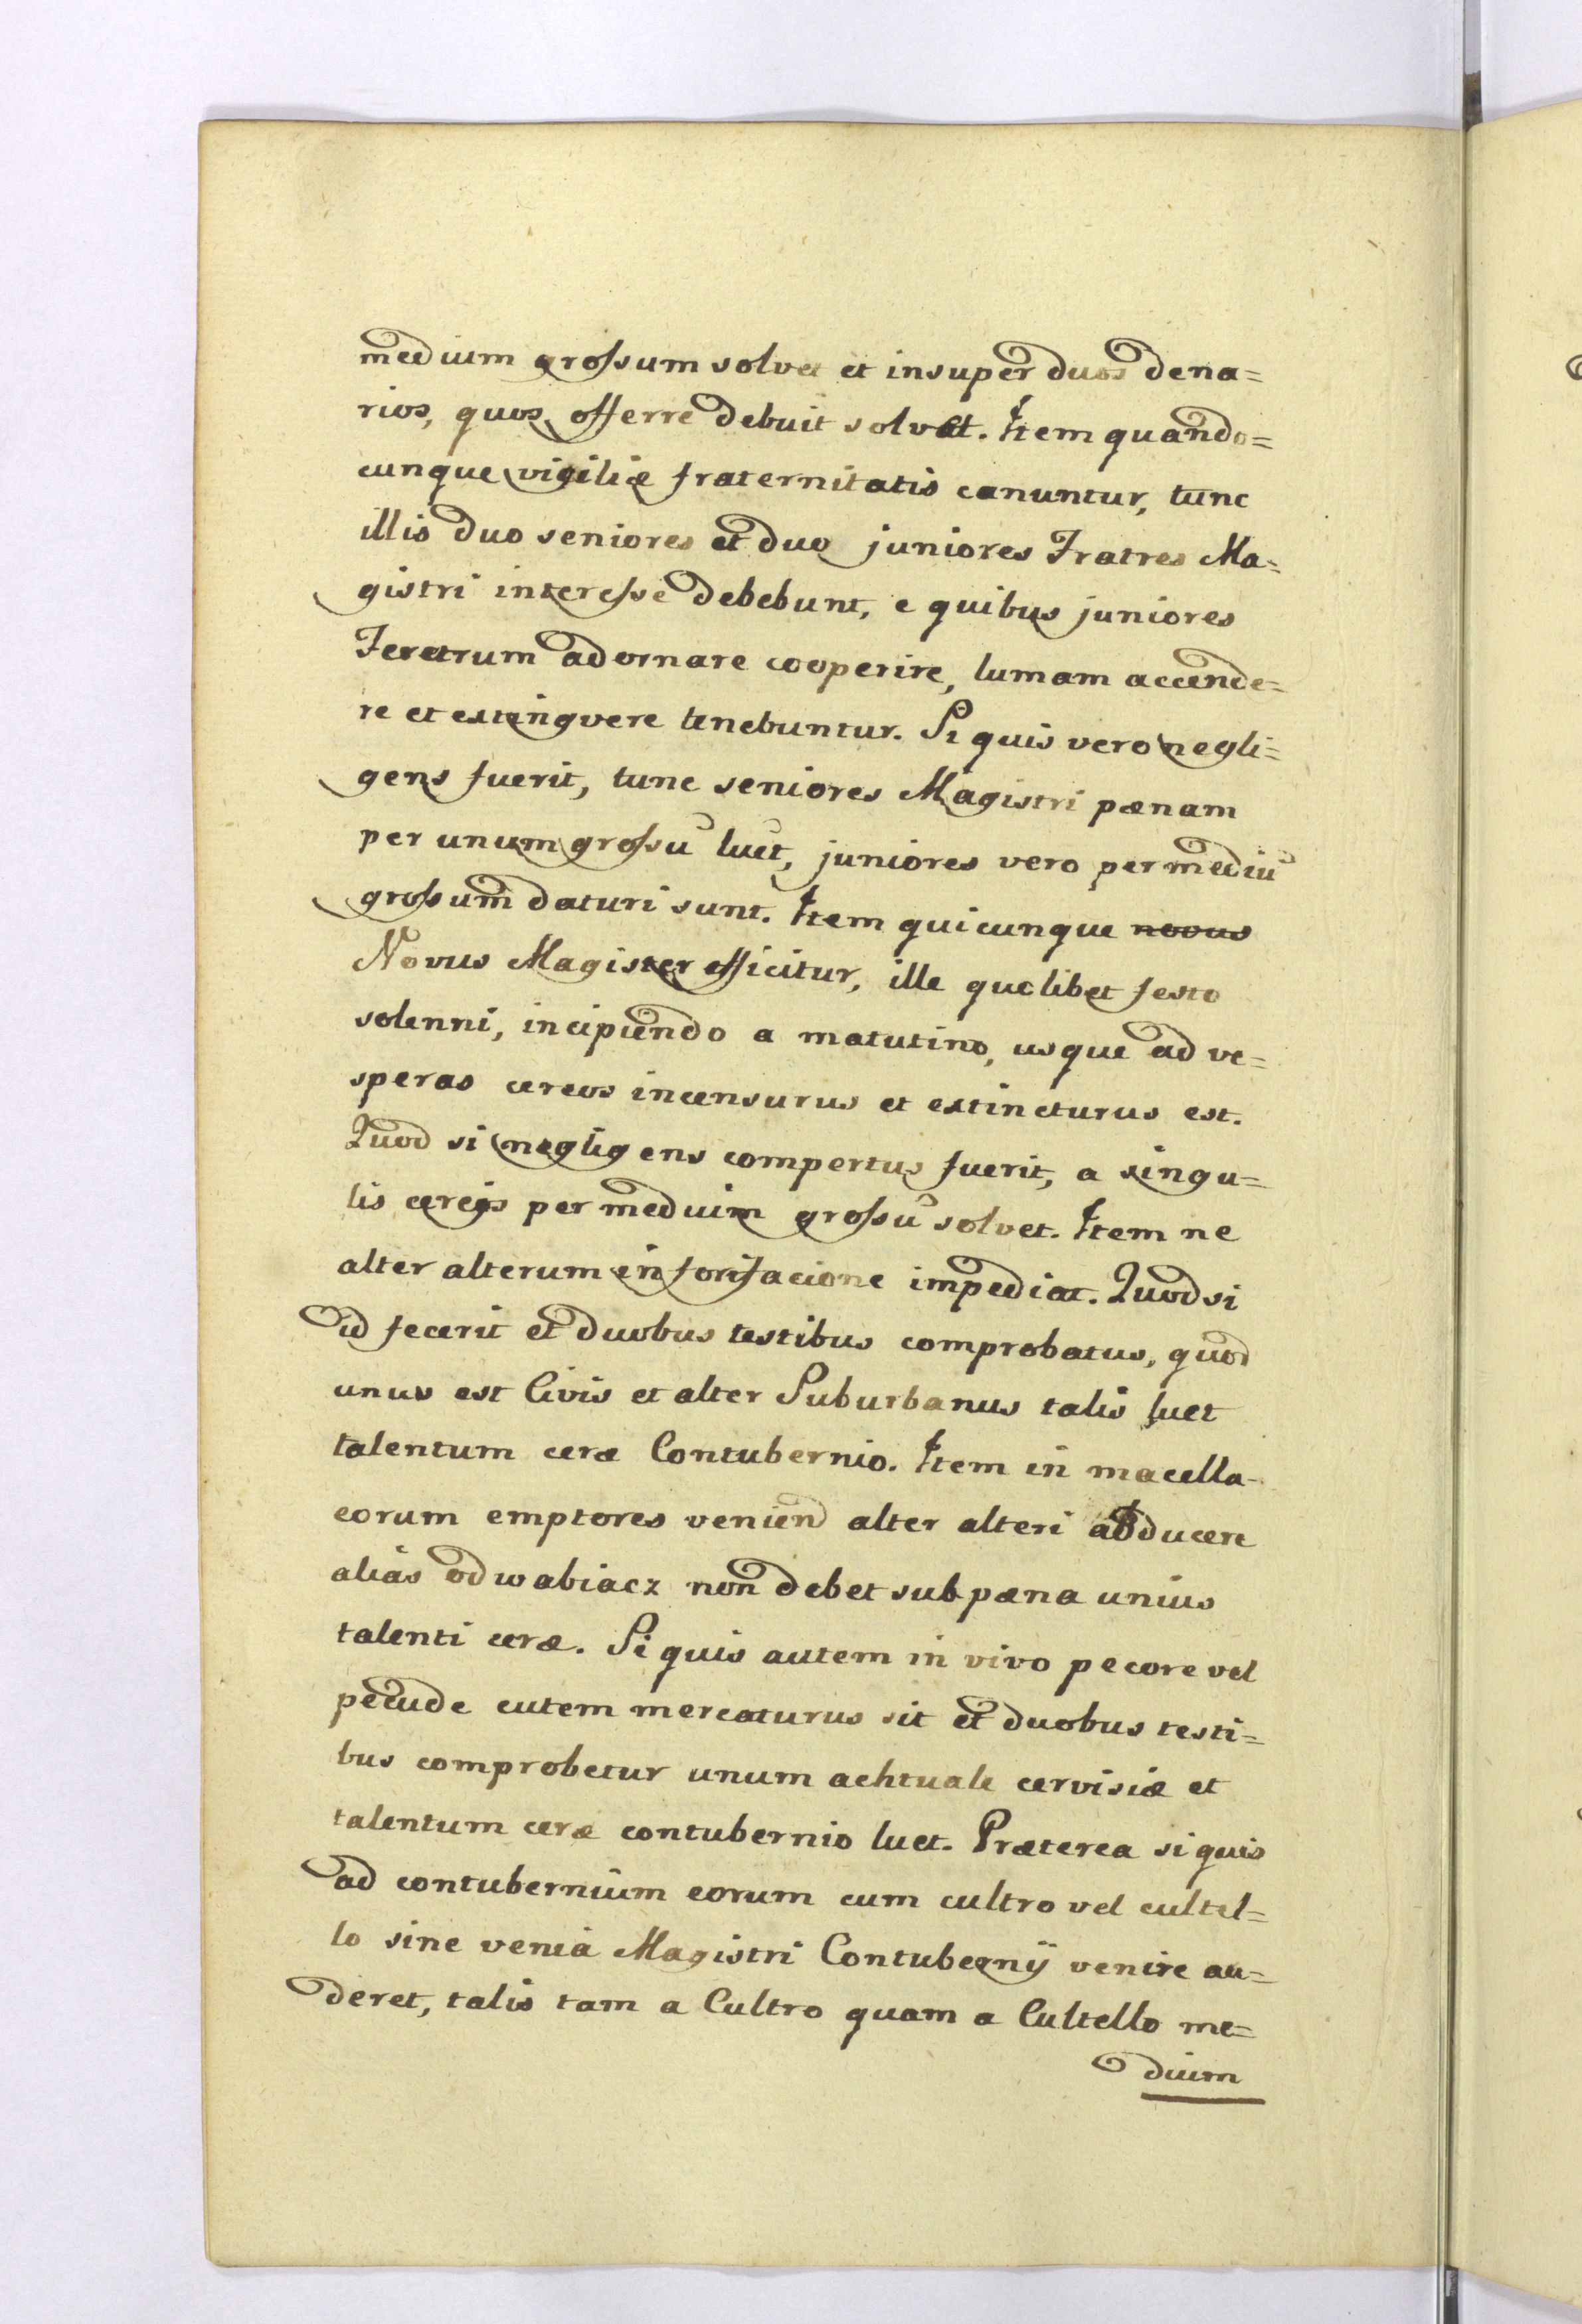 medium groſsum solvet et insuper duos dena=
rios, quos offerre debuit solvat. Item quando=
cunque vigiliæ fraternitatis canuntur, tunc
illis duo seniores et duo juniores Fratres Ma=
gistri intereſse debebunt, e quibus juniores
Feretrum adornare cooperire, lumam accende=
re et extingvere tenebuntur. Si quis vero negli=
gens fuerit, tunc seniores Magistri pænam
per unum groſsu᷉ luet, juniores vero per mediu᷉
groſsum daturi sunt. Item quicunque novus
Novus Magister efficitur, ille quolibet festo
solenni, incipiendo a matutino, usque ad ve=
speras cereos incensurus et extincturus est.
Quod si negligens compertus fuerit, a singu=
lis cereis per medium groſsu᷉ solvet. Item ne
alter alterum in forifacione impediat. Quod si
id fecerit et duobus testibus comprobatus, quod
unus est Civis et alter Suburbanus talis luet
talentum ceræ Contubernio. Item in macella
eorum emptores veniend alter alteri abducere
alias odwabiacz non debet sub pæna unius
talenti ceræ. Si quis autem in vivo pecore vel
pecude cutem mercaturus sit et duobus testi=
bus comprobetur unum achtuale cervisiæ et
talentum ceræ contubernio luet. Præterea si quis
ad contubernium eorum cum cultro vel cultel=
lo sine venia Magistri Contubernÿ venire au=
deret, talis tam a Cultro quam a Cultello me=
dium